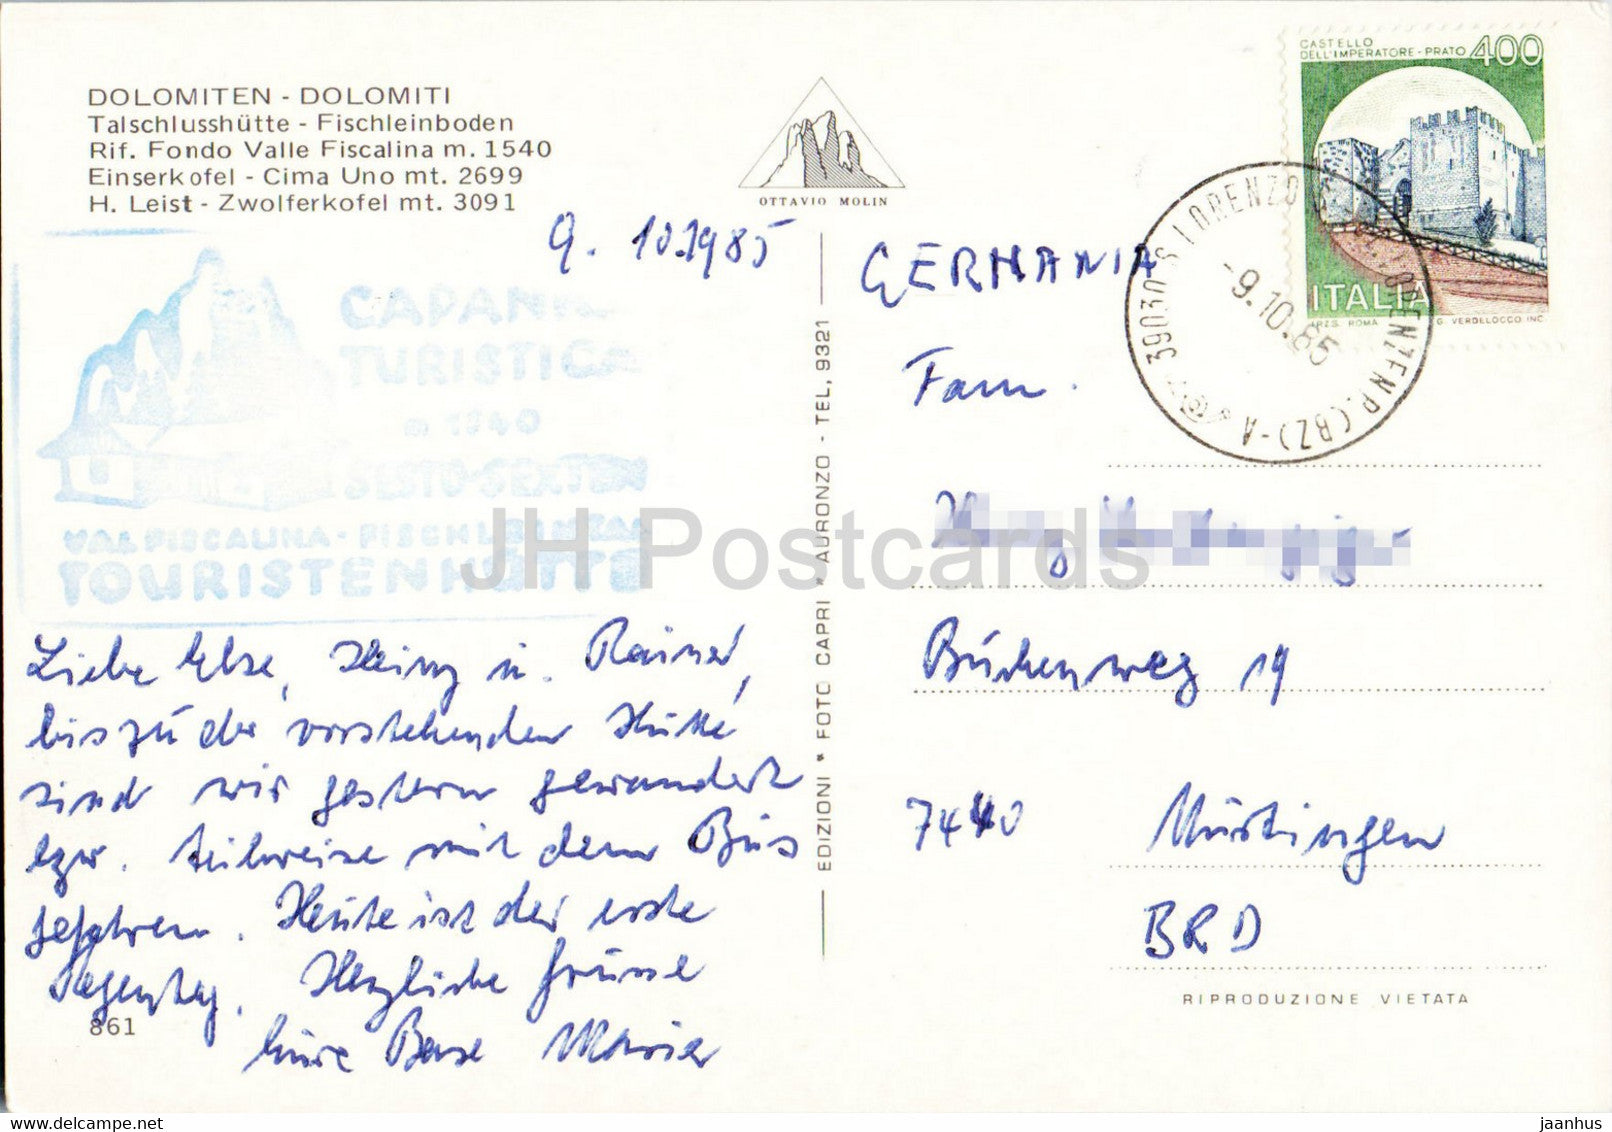 DOLOMITEN - DOLOMITI
Talschlusshütte - Fischleinboden
Rif. Fondo Valle Fiscalina m. 1540
Einserkofel - Cima Uno mt. 2699
H. Leist - Zwolferkofel mt. 3091
OTTAVIO MOLIN
CASTELLO
DELL'IMPERATORE - PRATO 400
ITALIA
I.P.Z.S. ROMA G. VERDELOCCO INC.
39030 S. LORENZO ST. LORENZEN P. (BZ) - A
-9.10.85
CAPANNA
TURISTICA
m 1540
SESTO-SEXTEN
VAL FISCALINA - FISCHLEINTAL
TOURISTENHÜTTE
9. 10.1985
Liebe Else, Heinz u. Rainer,
bis zu der vorstehenden Hütte
sind wir gestern gewandert
bzw. teilweise mit dem Bus
gefahren. Heute ist der erste
Regentag. Herzliche Grüsse
Eure Base Maria
861
EDIZIONI * FOTO CAPRI * AURONZO - TEL. 9321
GERMANIA
Fam.
Buchenweg 19
7440 Nürtingen
BRD
RIPRODUZIONE VIETATA
JH Postcards
jaanhus © delcampe.net